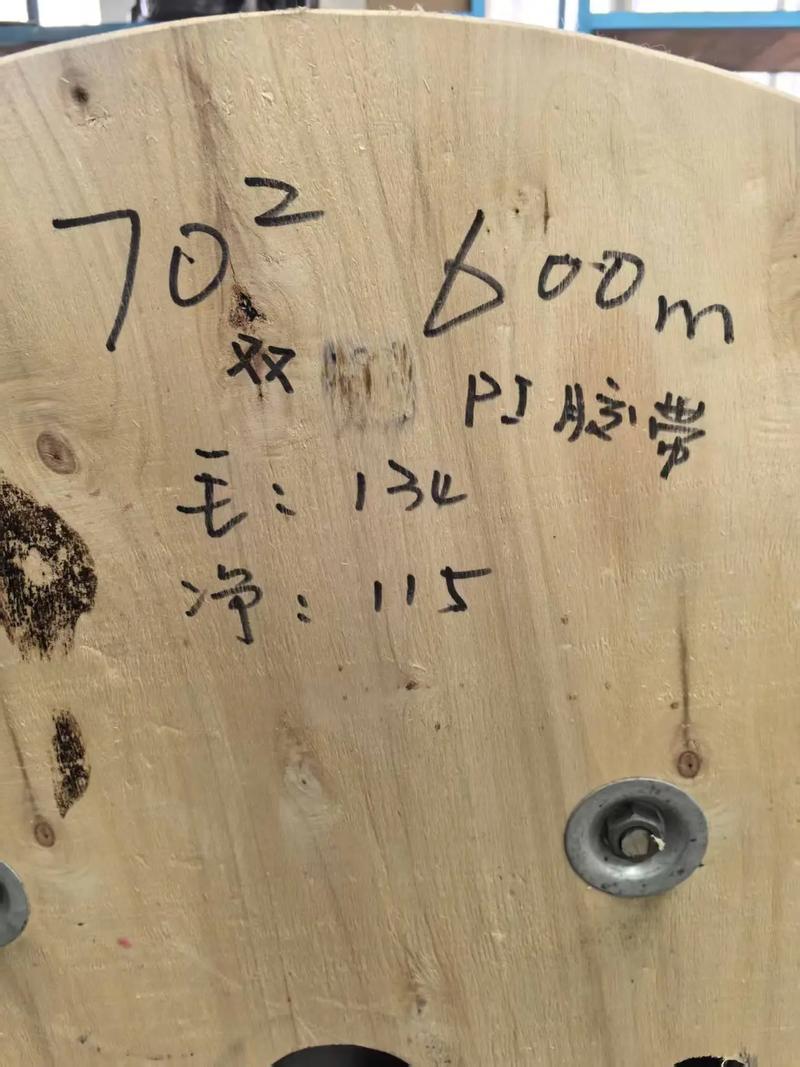 70² 600m
双 PI胶带
毛: 134
净: 115